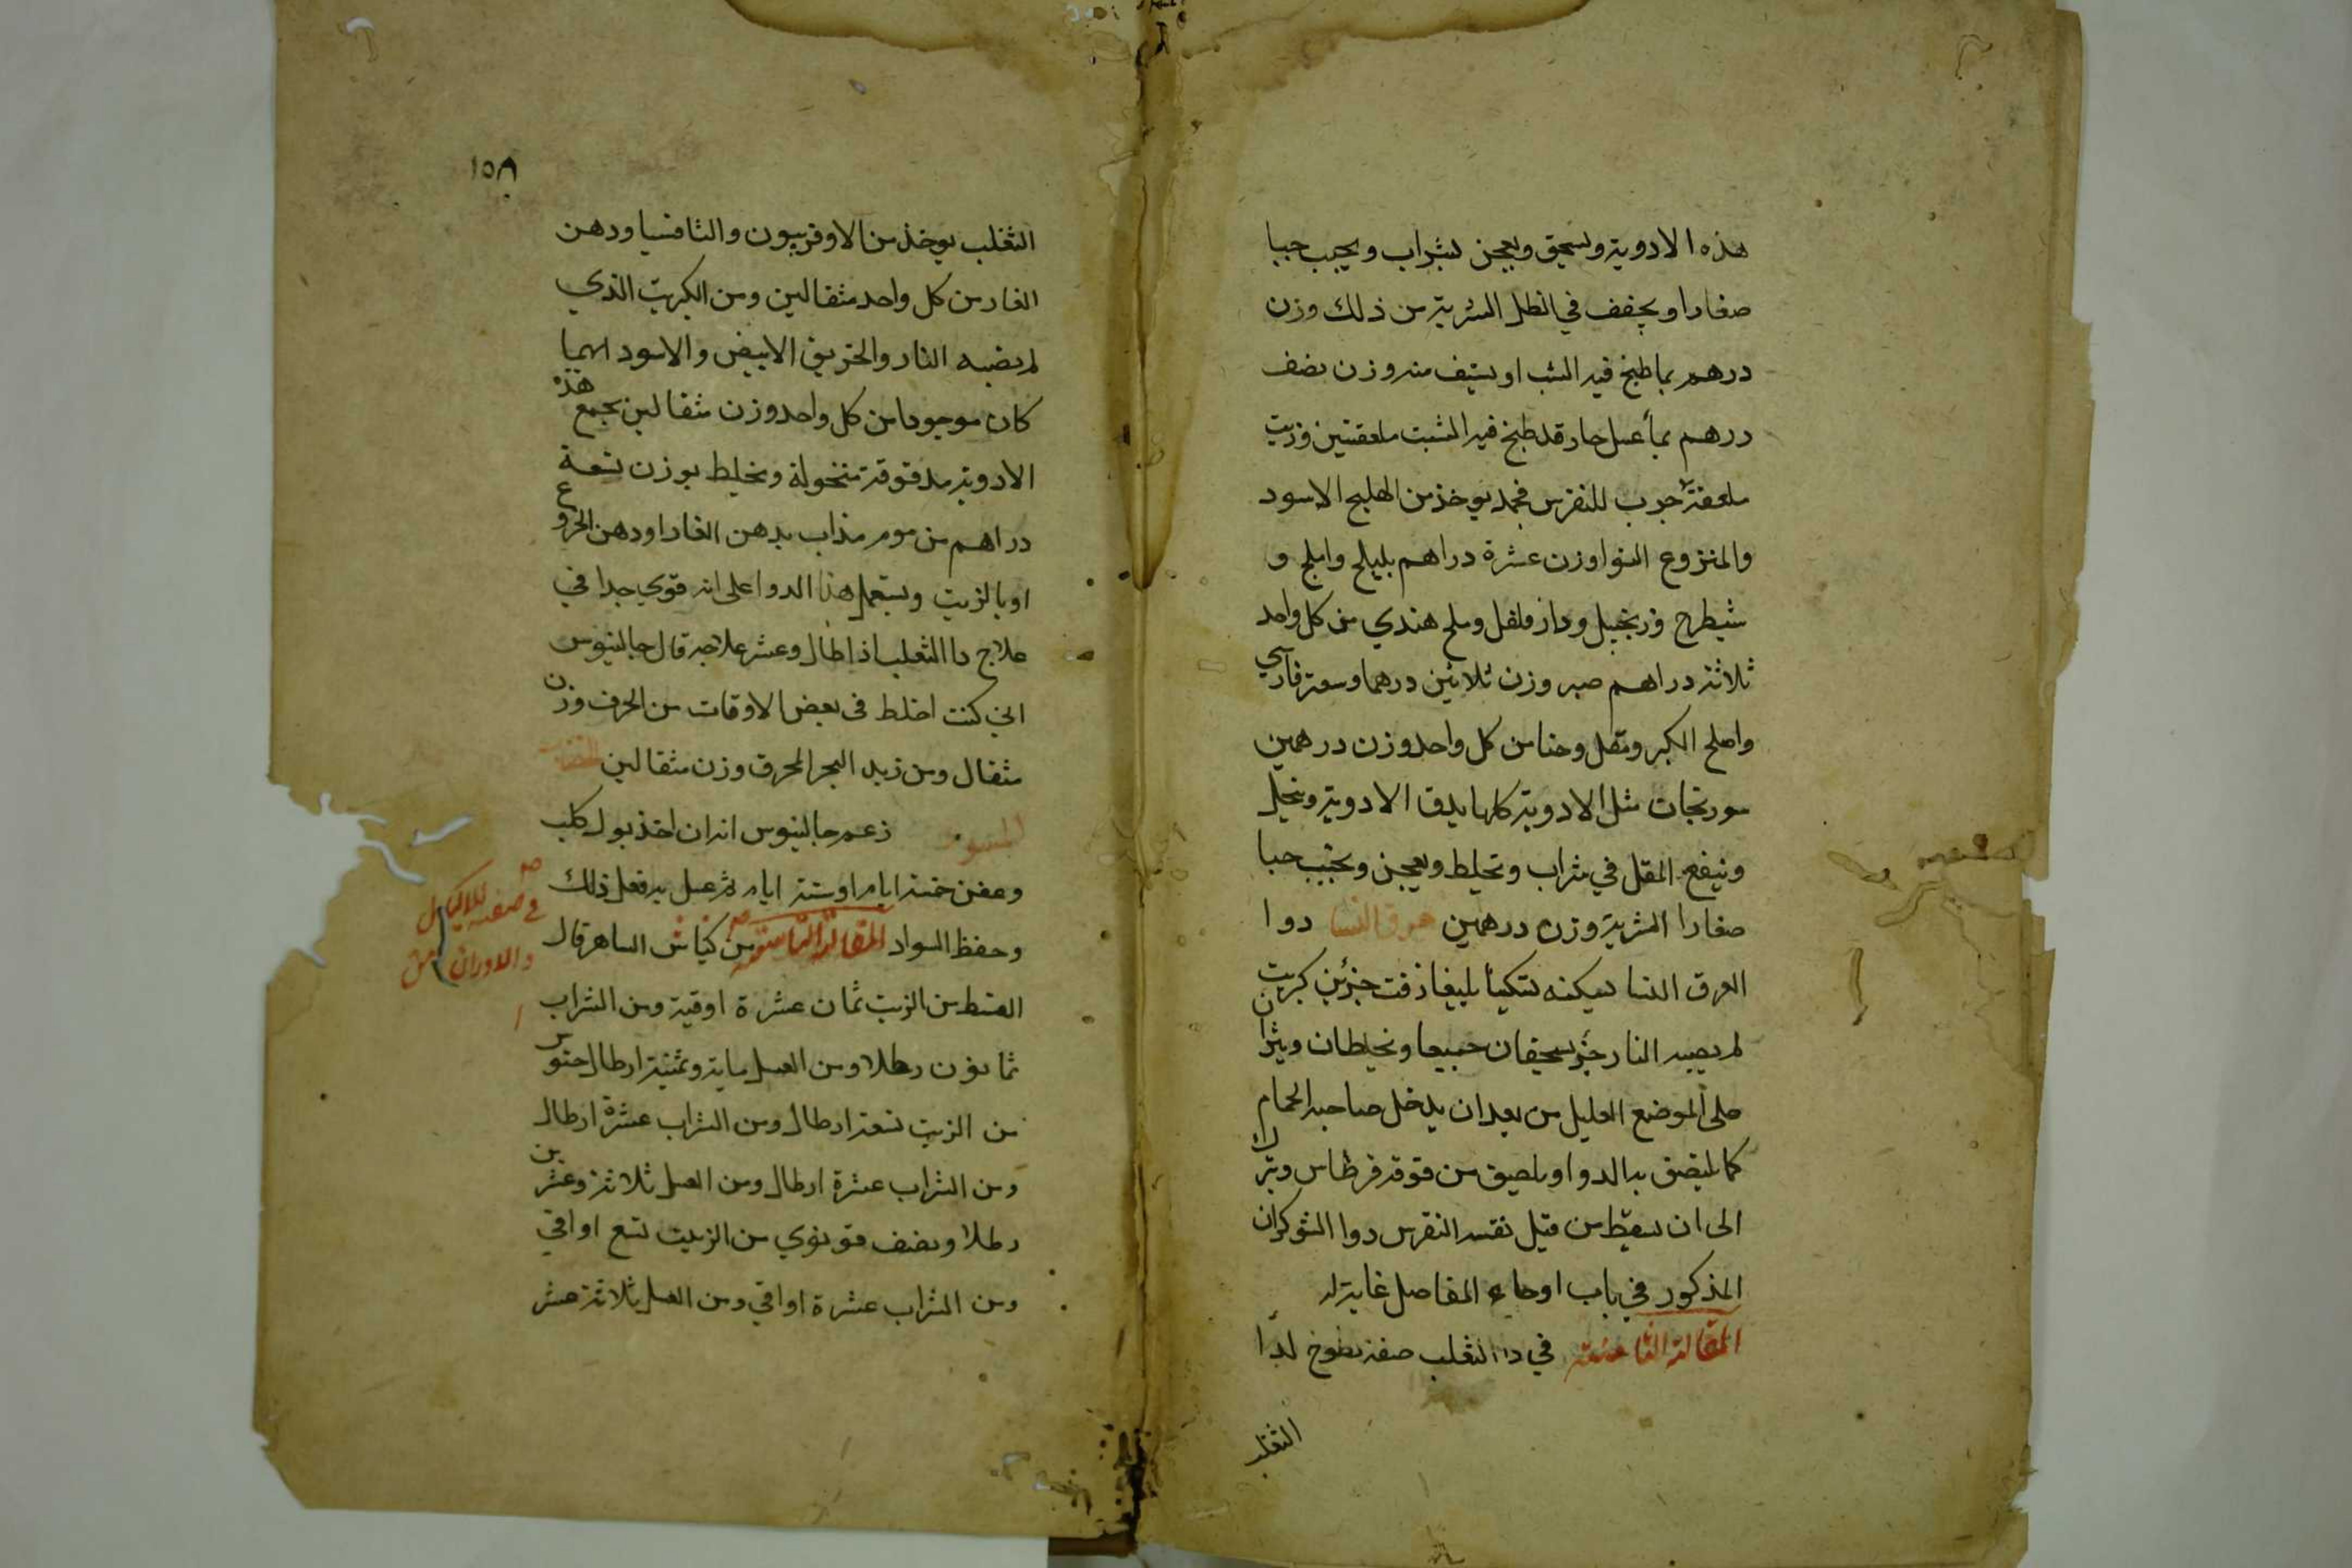 هذه الادوية وتسحق وتعجن بشراب ويحبب حبا
صغارا ويجفف في الظل الشربة من ذلك وزن
درهم بما طبخ فيه الشب او يستف منه وزن نصف
درهم بماء عسل حار قد طبخ فيه الشبت ملعقتين وزيت
ملعقة جرب للنقرس فحمد يوخذ من الهليج الاسود
والمنزوع النوا وزن عشرة دراهم بليلج واملج و
شيطرج وزنجبيل ودار فلفل وملح هندي من كل واحد
ثلاثة دراهم صبر وزن ثلاثين درهما وسعتر فارسي
واصلح الكبر ومقل وحنا من كل واحد وزن درهمين
سورنجان مثل الادوية كلها يدق الادوية وينخل
وينقع المقل في شراب وتخلط ويعجن ويحبب حبا
صغارا الشربة وزن درهمين عرق النسا دوا
العرق النسا يسكنه تسكينا بليغا زفت جزئين كبريت
لم يصبه النار جزء يسحقان جميعا ويخلطان وينثران
على الموضع العليل من بعد ان يدخل صاحبه الحمام
كما يلصق به الدوا ويلصق من فوقه قرطاس ويترك
الى ان يسقط من قبل نفسه النقرس دوا الشوكران
المذكور في باب اوجاع المفاصل غاية له
المقالة الثامنة في دا الثعلب صفة لطوخ لدا
الثعلب
١٥٨
الثعلب يوخذ من الاوفربيون والثافسيا ودهن
الغار من كل واحد مثقالين ومن الكبريت الذي
لم يصبه النار والخربق الابيض والاسود ايهما
كان موجودا من كل واحد وزن مثقالين يجمع هذه
الادوية مدقوقة منخولة ويخلط بوزن تسعة
دراهم من موم مذاب بدهن الغار او دهن الخروع
او بالزيت ويستعمل هذا الدوا على انه قوي جدا في
علاج دا الثعلب اذا طال وعسر علاجه قال جالينوس
اني كنت اخلط في بعض الاوقات من الحرف وزن
مثقال ومن زبد البحر المحرق وزن مثقالين
زعم جالينوس انه ان اخذ بول كلب
وعفن خمسة ايام او ستة ايام ثم غسل به فعل ذلك
وحفظ السواد المقالة التاسعة من كناش الساهر قال
في صفة للاكيال
والاوزان من
القسط من الزيت ثمان عشرة اوقية ومن الشراب
ثمانون رطلا ومن العسل ماية وثمنية ارطال حنوس
من الزيت تسعة ارطال ومن الشراب عشرة ارطال
ومن الشراب عشرة ارطال ومن العسل ثلاثة وعشرين
رطلا ونصف قوتوي من الزيت تسع اواقي
ومن الشراب عشرة اواقي ومن العسل ثلاثة عشر